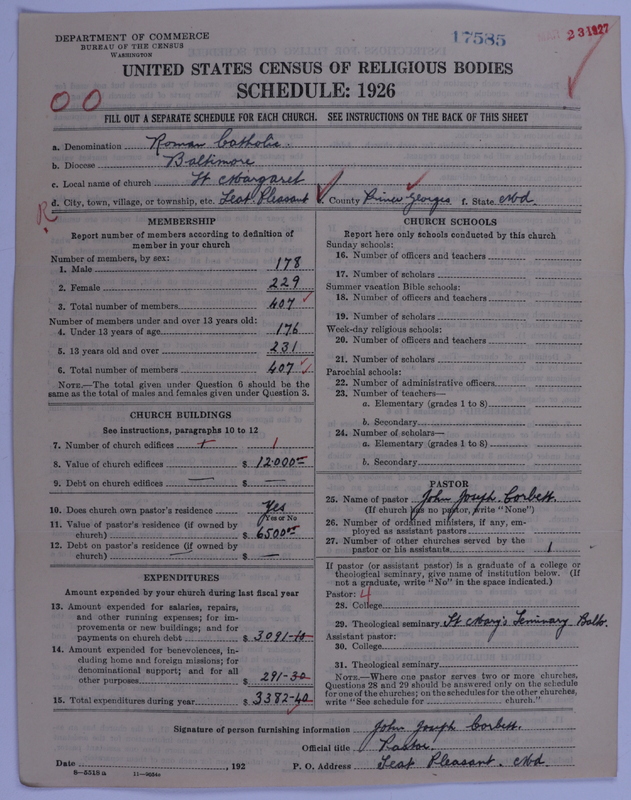 DEPARTMENT OF COMMERCE
BUREAU OF THE CENSUS
WASHINGTON
17585
23 1927
UNITED STATES CENSUS OF RELIGIOUS BODIES
SCHEDULE: 1926
FILL OUT A SEPARATE SCHEDULE FOR EACH CHURCH. SEE INSTRUCTIONS ON THE BACK OF THIS SHEET
a. Denomination Roman Catholic.
b. Diocese Baltimore
c. Local name of church St Margaret
d. City, town, village, or township, etc. Seat Pleasant e. County Prince Georges f. State Md.
R
MEMBERSHIP
Report number of members according to definition of
member in your church
Number of members, by sex:
1. Male 178
2. Female 229
3. Total number of members 407
Number of members under and over 13 years old:
4. Under 13 years of age 176
5. 13 years old and over 231
6. Total number of members 407
NOTE.—The total given under Question 6 should be the
same as the total of males and females given under Question 3.
CHURCH BUILDINGS
See instructions, paragraphs 10 to 12
7. Number of church edifices 1
8. Value of church edifices $ 12000
9. Debt on church edifices — $ —
10. Does church own pastor's residence Yes
Yes or No
11. Value of pastor's residence (if owned by
church) $ 6500
12. Debt on pastor's residence (if owned by
church) — $ —
EXPENDITURES
Amount expended by your church during last fiscal year
13. Amount expended for salaries, repairs,
and other running expenses; for im-
provements or new buildings; and for
payments on church debt $ 3091-10
14. Amount expended for benevolences, in-
cluding home and foreign missions; for
denominational support; and for all
other purposes $ 291-30
15. Total expenditures during year $ 3382-40
CHURCH SCHOOLS
Report here only schools conducted by this church
Sunday schools:
16. Number of officers and teachers
17. Number of scholars
Summer vacation Bible schools:
18. Number of officers and teachers
19. Number of scholars
Week-day religious schools:
20. Number of officers and teachers
21. Number of scholars
Parochial schools:
22. Number of administrative officers
23. Number of teachers—
a. Elementary (grades 1 to 8)
b. Secondary
24. Number of scholars—
a. Elementary (grades 1 to 8)
b. Secondary
PASTOR
25. Name of pastor John Joseph Corbett
(If church has no pastor, write "None")
26. Number of ordained ministers, if any, em-
ployed as assistant pastors
27. Number of other churches served by the
pastor or his assistants 1
If pastor (or assistant pastor) is a graduate of a college or
theological seminary, give name of institution below. (If
not a graduate, write "No" in the space indicated.)
Pastor: 4
28. College
29. Theological seminary St Mary's Seminary Balto.
Assistant pastor:
30. College
31. Theological seminary
NOTE.—Where one pastor serves two or more churches,
Questions 28 and 29 should be answered only on the schedule
for one of the churches; on the schedules for the other churches,
write "See schedule for church."
Signature of person furnishing information John Joseph Corbett.
Official title Pastor.
Date , 192 P. O. Address Seat Pleasant. Md.
8—5518a